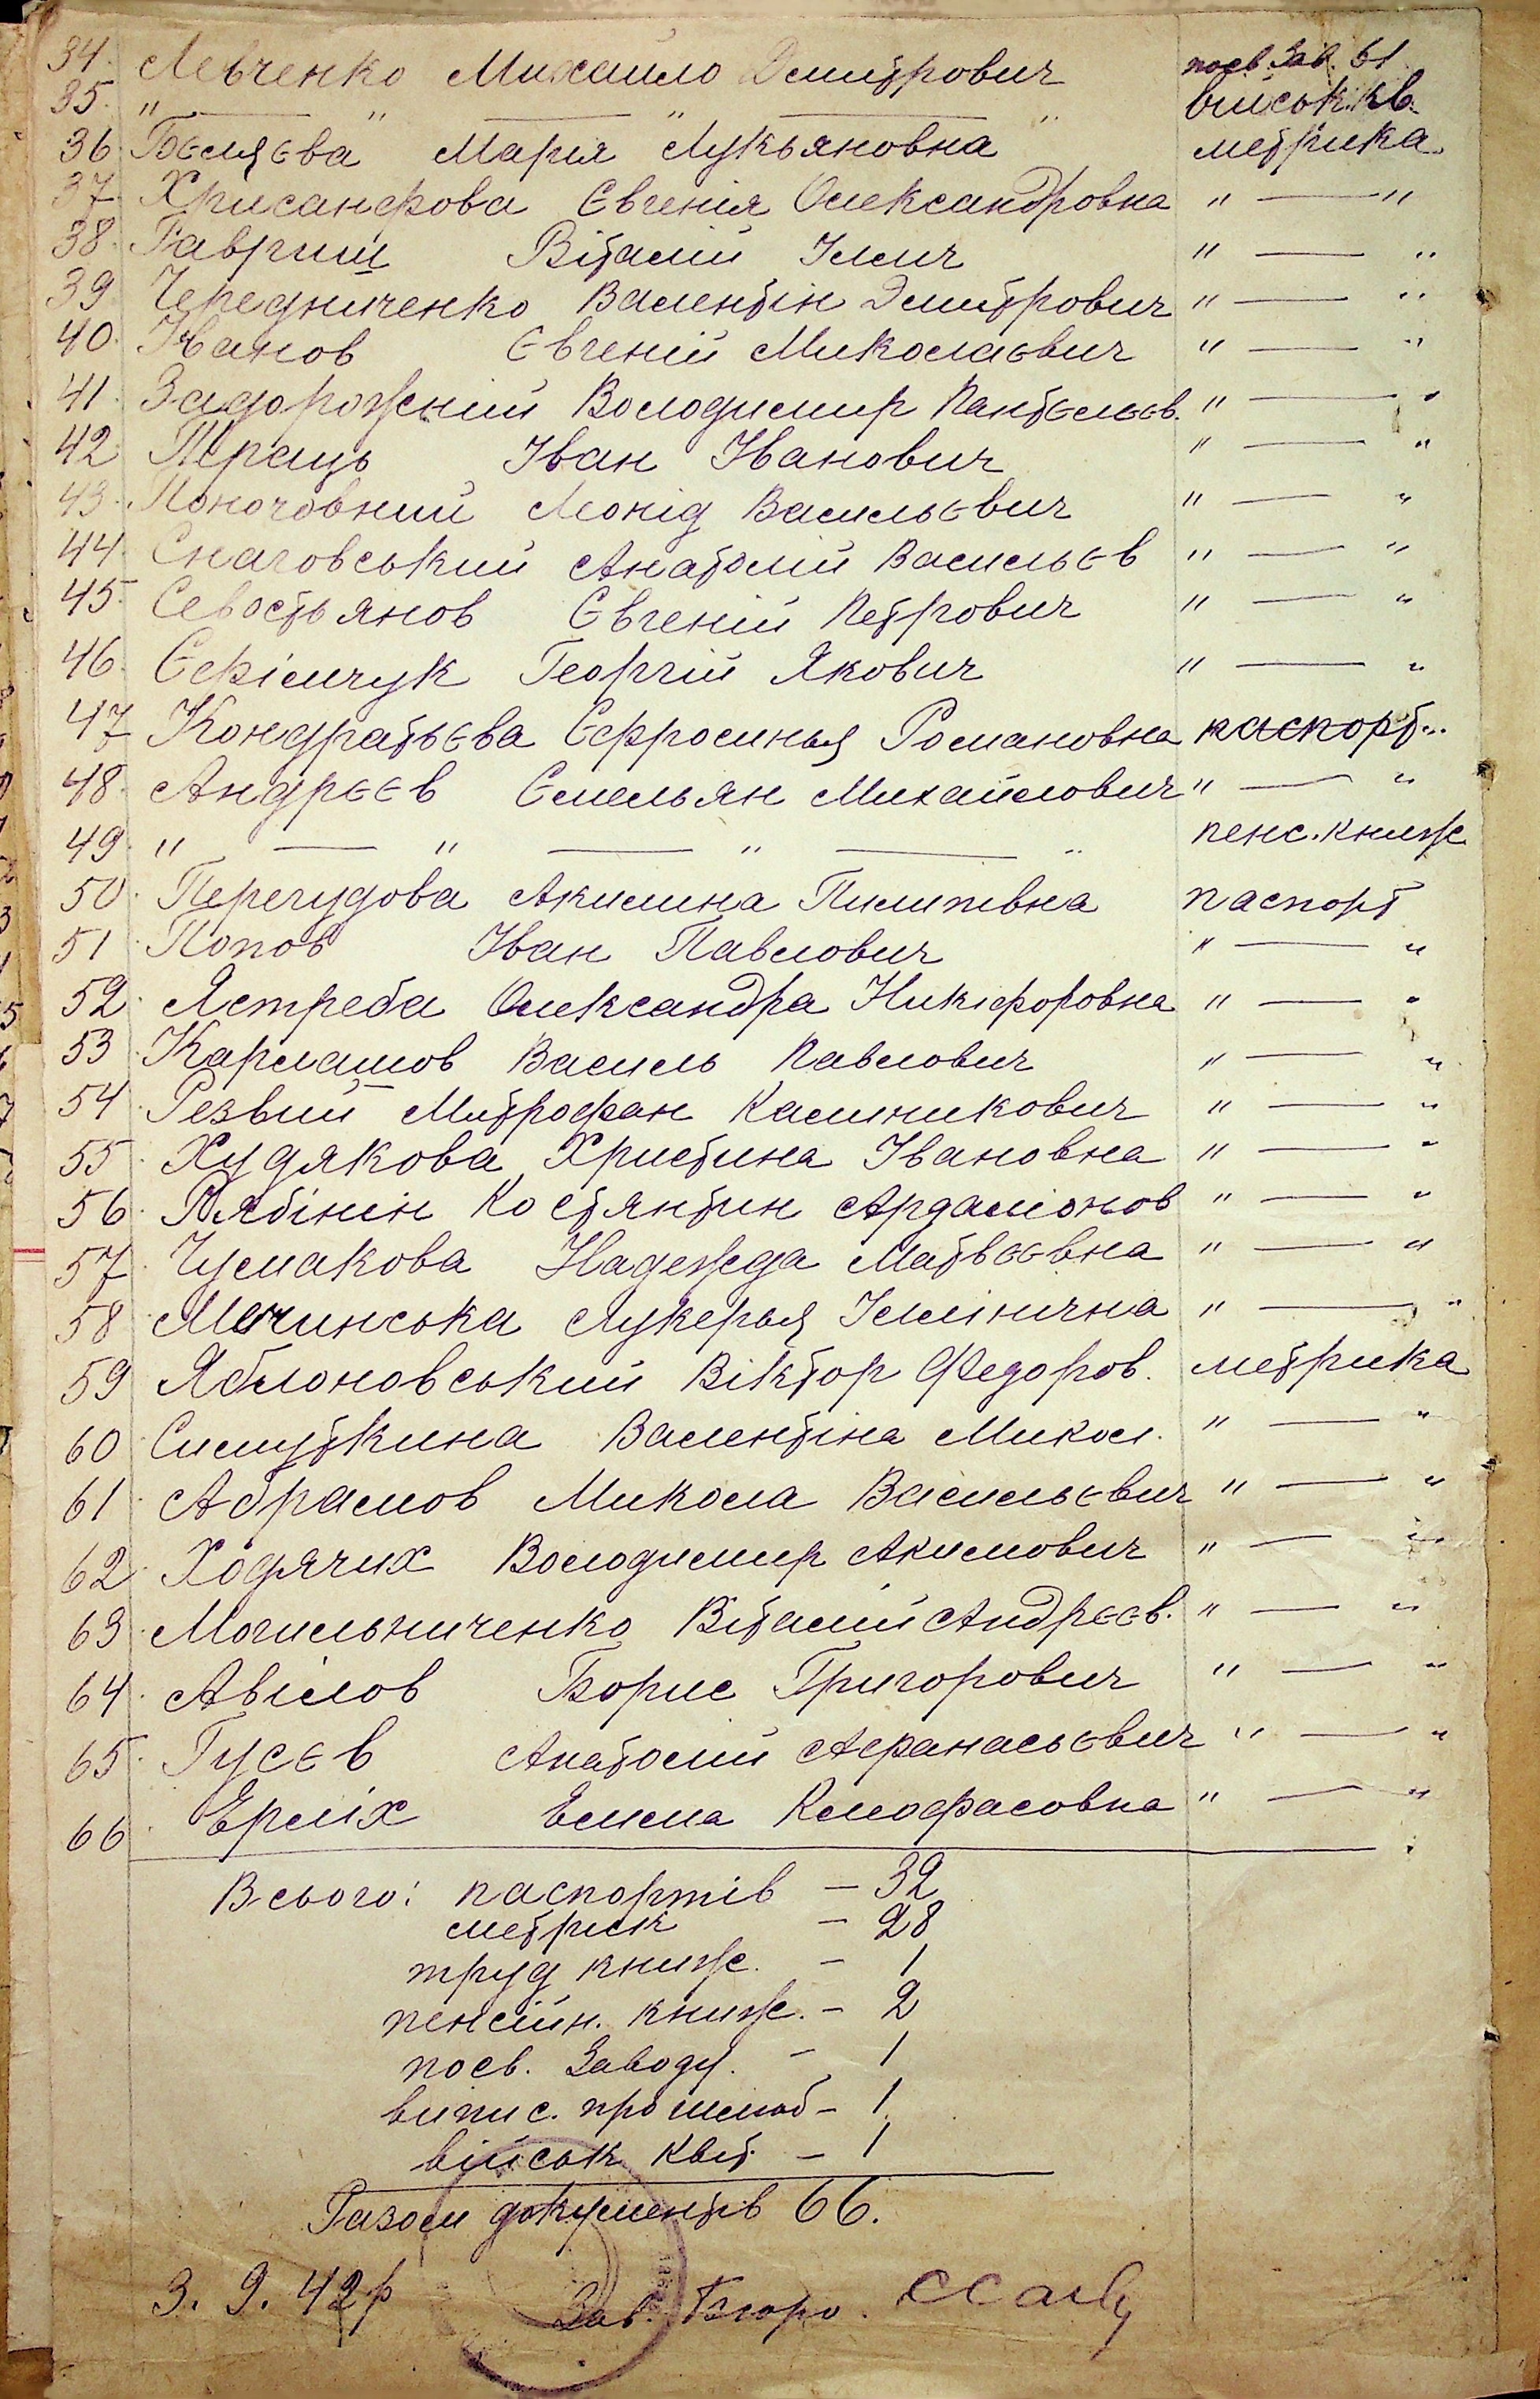 34. Левченко Михайло Дмитрович посв. Зав. 61
35. " — " — " — " військ. кв.
36. Бєляєва Марія Лукьяновна метрика
37 Хрисанфова Євгенія Олександровна " — "
38. Гавриш Віталій Ілліч " — "
39 Чередниченко Валентін Дмитрович " — "
40. Іванов Євгеній Миколаєвич " — "
41. Задорожній Володимир Пантєлєєв. " — "
42 Іван Іванович " — "
43. Поночовний Леонід Васильєвич " — "
44. Снаговський Анатолій Васильєв " — "
45. Севостьянов Євгеній Петрович " — "
46. Єфімчук Георгій Якович " — "
47 Кондратьєва Єфросинья Романовна паспорт
48. Андрєєв Ємельян Михайлович " — "
49. " — " — " — " пенс. книж
50. Перегудова Акилина Пилипівна паспорт
51 Попов Іван Павлович " — "
52. Ястреба Олександра Никіфоровна " — "
53 Карлашов Василь Павлович " — "
54 Резвий Митрофан Калиникович " — "
55 Худякова Христина Івановна " — "
56. Рябінін Костянтин Ардаліонов " — "
57 Чумакова Надежда Матвєєвна " — "
58 Мечинська Лукерья Іллінічна " — "
59 Яблоновський Віктор Федоров. метрика
60 Силуткина Валентіна Микол. " — "
61 Абрамов Микола Васильєвич " — "
62. Ходячих Володимир Акимович " — "
63 Могильниченко Віталій Андрєєв. " — "
64. Авілов Борис Григорович " — "
65. Гусєв Анатолій Афанасьєвич " — "
66. Ерліх Емма " — "
Всього: паспортів — 32
метрик — 28
труд книж. — 1
пенсійн. книж. — 2
посв. Заводу. — 1
випис. про шлюб — 1
військ квит. — 1
Разом документів 66.
3. 9. 42 р
Зав. Бюро.